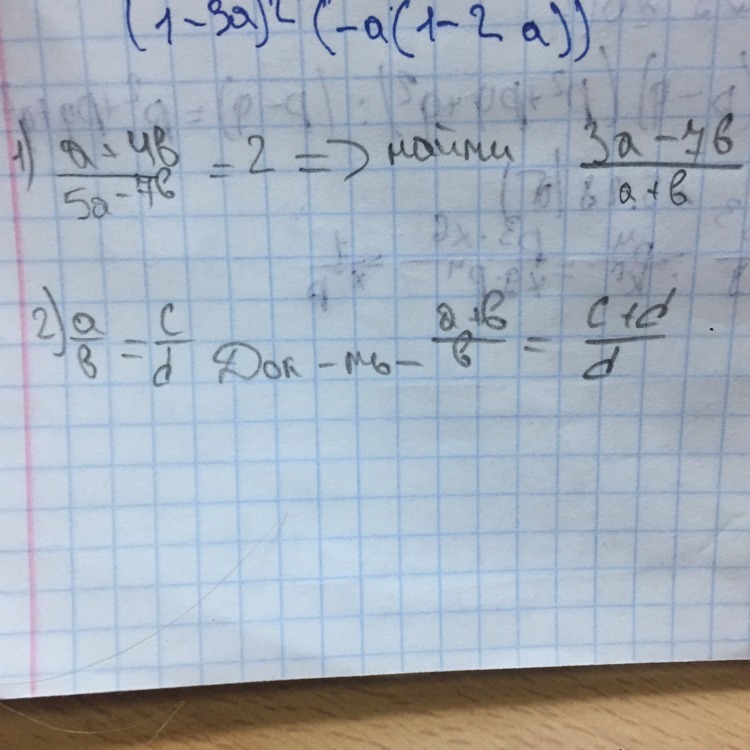 (1-3a)² (-a(1-2a))
1) a+4b / 5a-7b = 2 => найти 3a-7b / a+b
2) a/b = c/d Док-ть- a+b / b = c+d / d